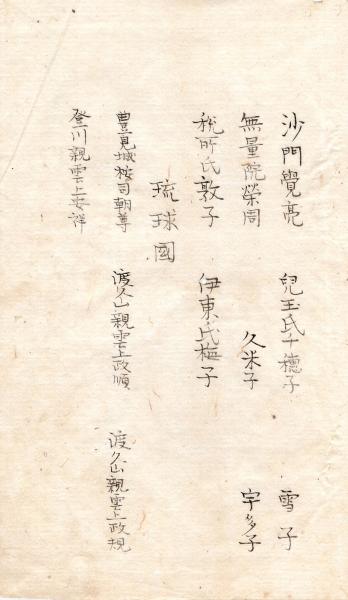 沙門覺亮 兒玉氏千穗子 雪子
無量院榮周 久米子 宇多子
税所氏敦子 伊東氏梅子
琉球國
豊見城按司朝尊 渡久山親雲上政順 渡久山親雲上政規
登川親雲上安祥